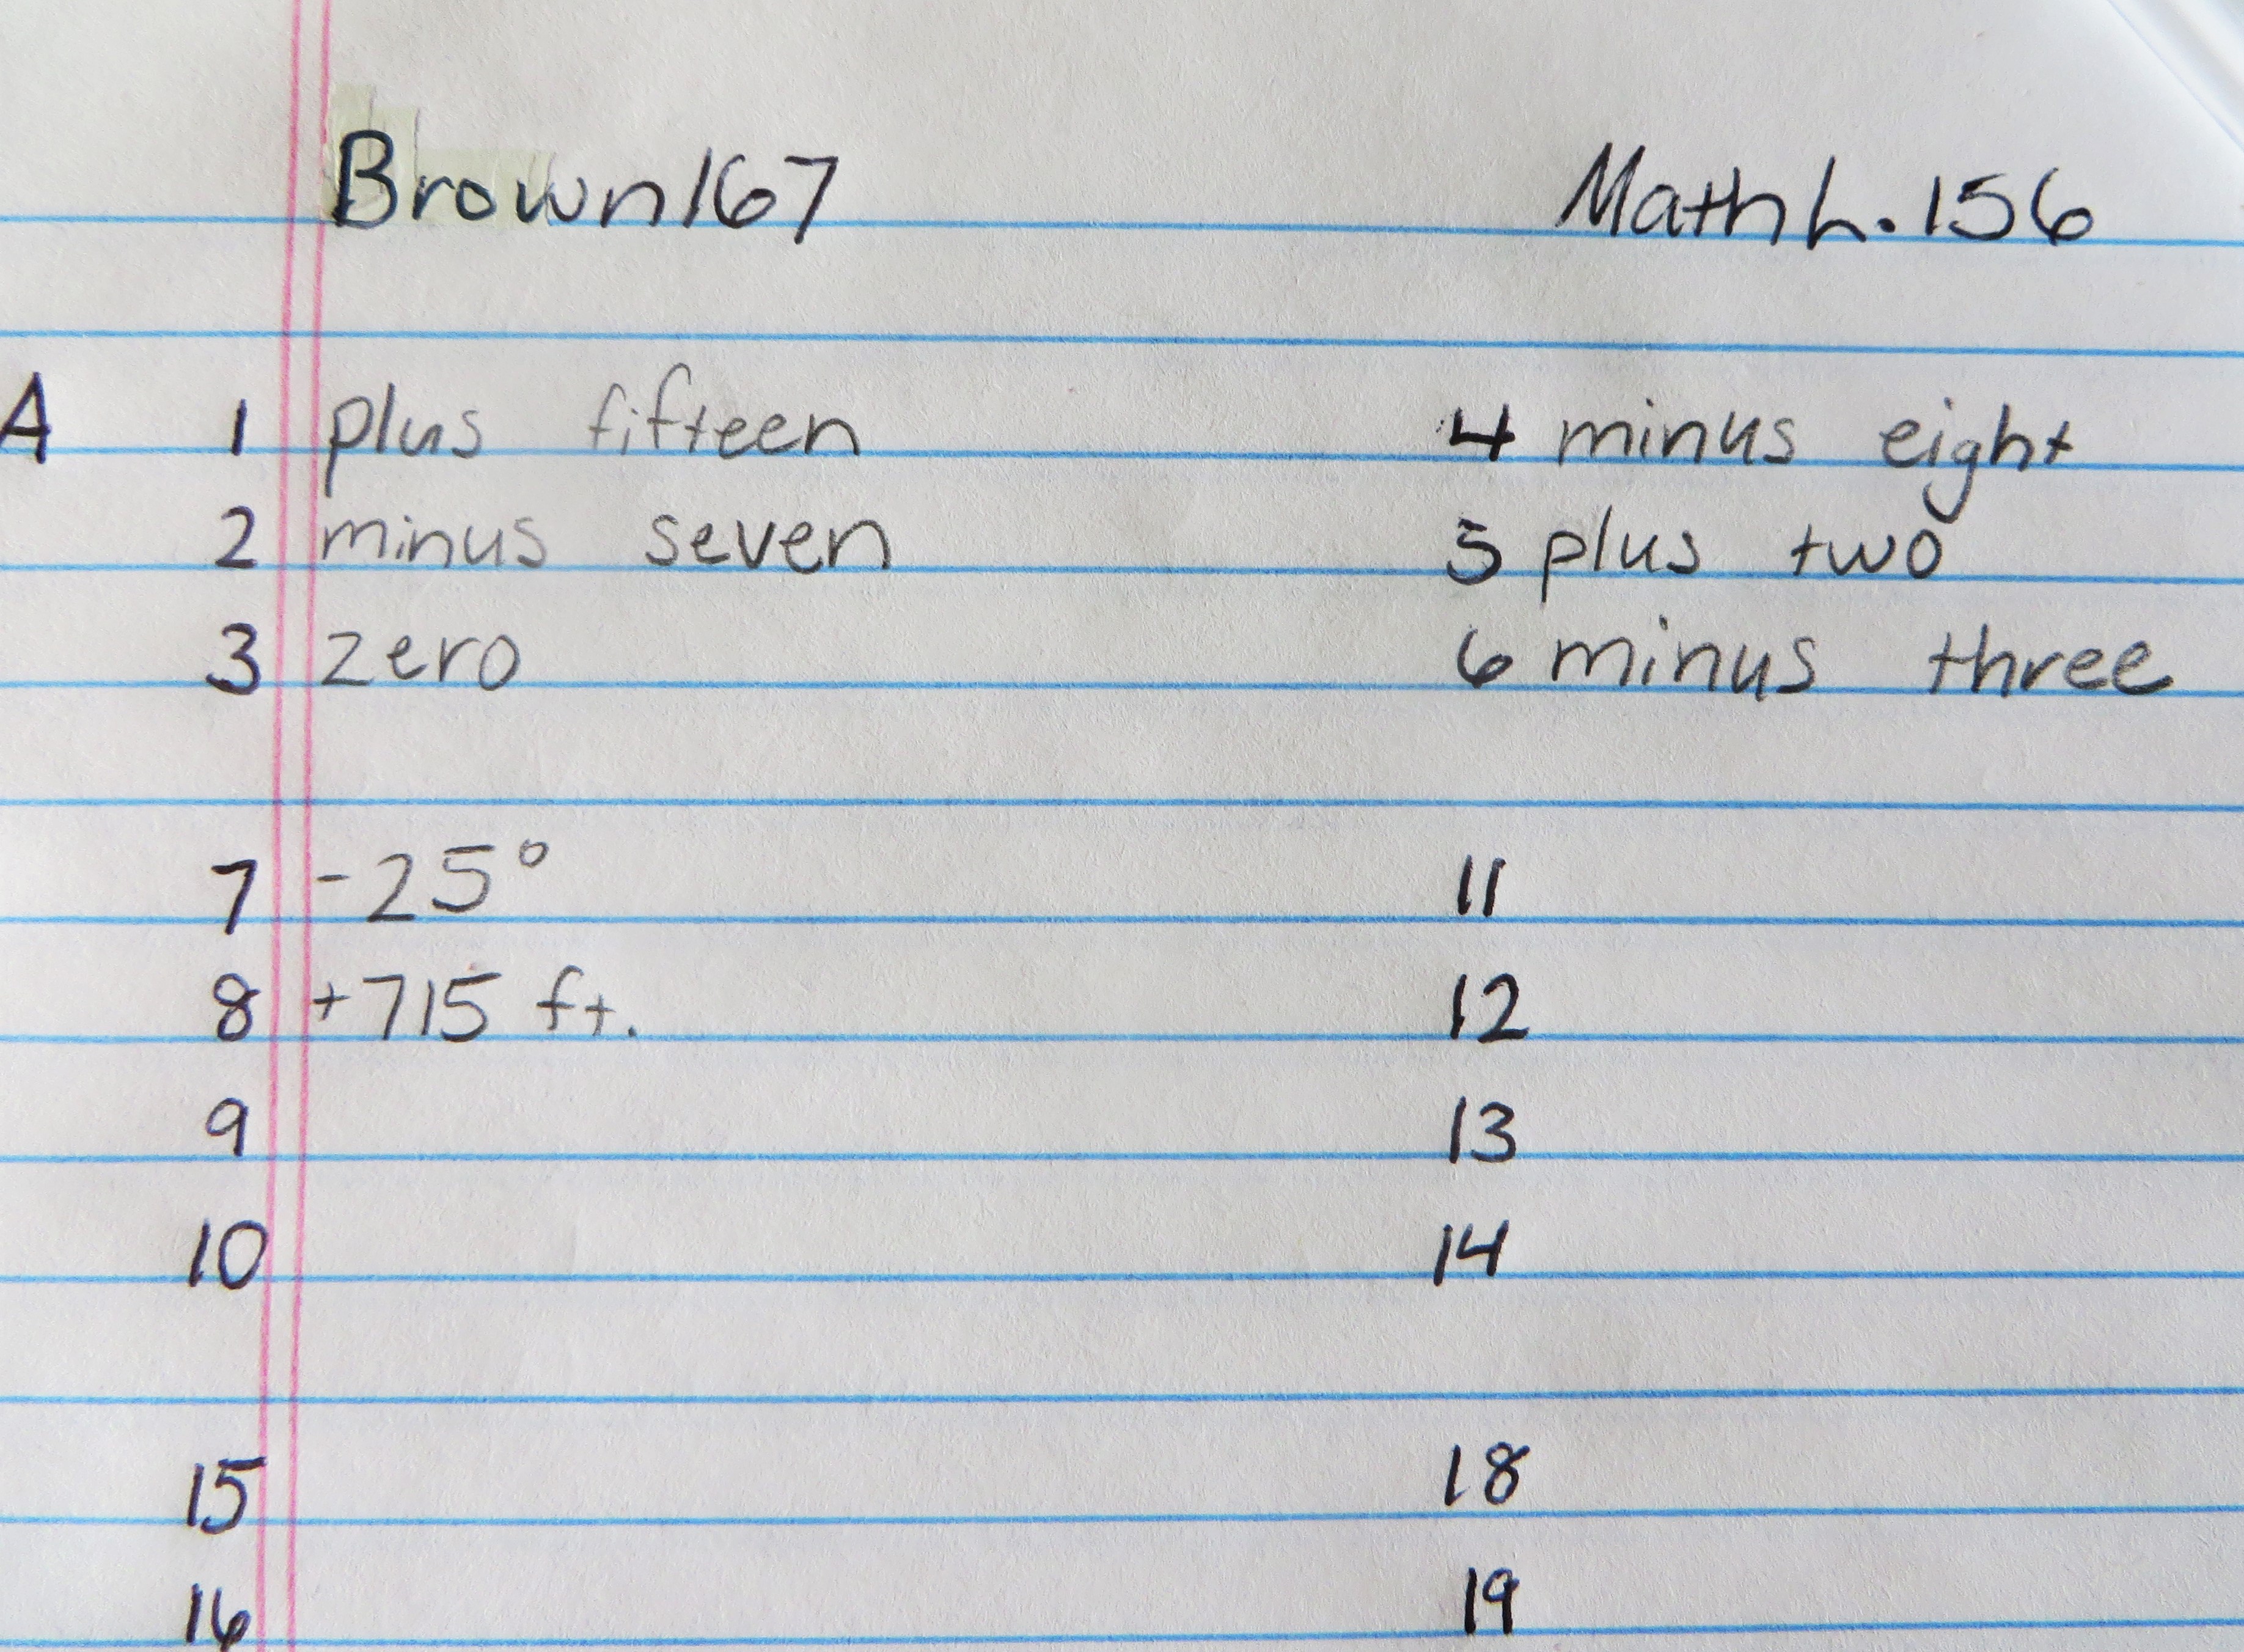 Brown 167 Math L. 156
A 1 plus fifteen 4 minus eight
2 minus seven 5 plus two
3 zero 6 minus three
7 -25° 11
8 +715 ft. 12
9 13
10 14
15 18
16 19